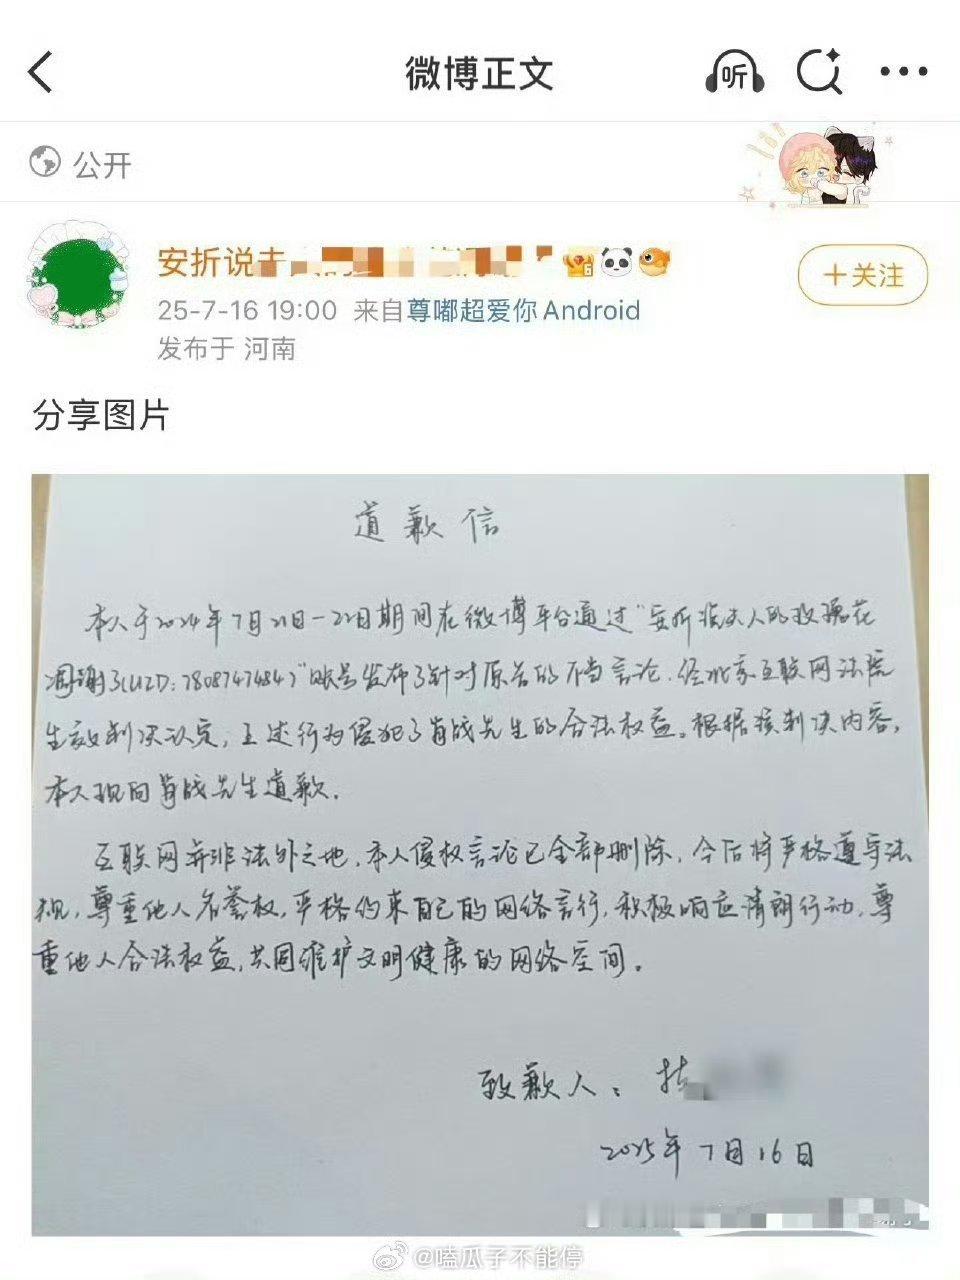 微博正文
听
公开
安折说夫
6
+关注
25-7-16 19:00 来自尊嘟超爱你Android
发布于 河南
分享图片
道歉信
本人于2024年7月21日-22日期间在微博平台通过"安折说夫人的玫瑰花
凋谢了(UID:7808747484)"账号发布了针对原告的不当言论,经北京互联网法院
生效判决认定,上述行为侵犯了肖战先生的合法权益。根据该判决内容,
本人现向肖战先生道歉.
互联网并非法外之地,本人侵权言论已全部删除,今后将严格遵守法
规,尊重他人名誉权,严格约束自己的网络言行,积极响应清朗行动,尊
重他人合法权益,共同维护文明健康的网络空间。
致歉人:
2025年7月16日
@嗑瓜子不能停